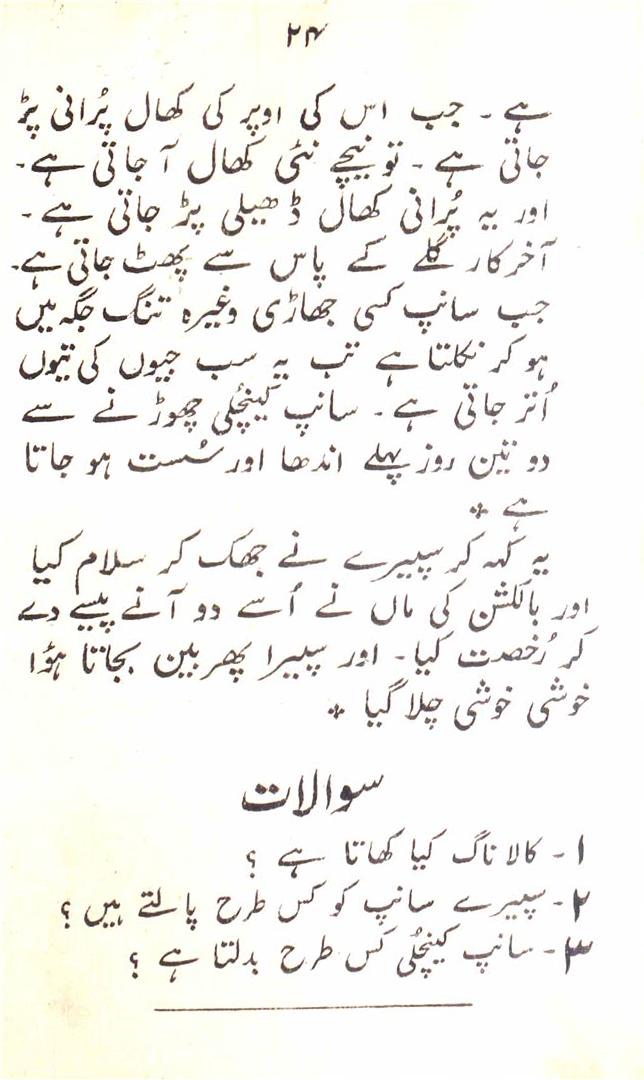 ۲۴
ہے ۔ جب اس کی اوپر کی کھال پُرانی پڑ
جاتی ہے ۔ تو نیچے نئی کھال آ جاتی ہے ۔
اور یہ پُرانی کھال ڈھیلی پڑ جاتی ہے ۔
آخرکار گلے کے پاس سے پھٹ جاتی ہے۔
جب سانپ کسی جھاڑی وغیرہ تنگ جگہ میں
ہو کر نکلتا ہے تب یہ سب جیوں کی تیوں
اُتر جاتی ہے ۔ سانپ کینچُلی چھوڑنے سے
دو تین روز پہلے اندھا اور سُست ہو جاتا
ہے *
یہ کہہ کر سپیرے نے جھک کر سلام کیا
اور بالکشن کی ماں نے اُسے دو آنے پیسے دے
کر رُخصت کیا۔ اور سپیرا پھر بین بجاتا ہؤا
خوشی خوشی چلا گیا *
سوالات
۱- کالا ناگ کیا کھاتا ہے ؟
۲- سپیرے سانپ کو کس طرح پالتے ہیں ؟
۳- سانپ کینچُلی کس طرح بدلتا ہے ؟